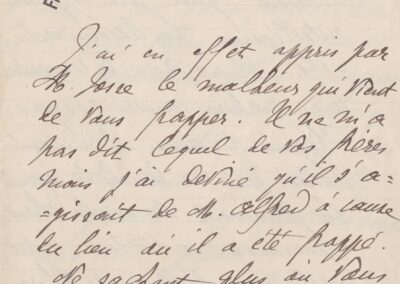 J'ai en effet appris par
M. Josse le malheur qui vient
de vous frapper. Il ne m'a
pas dit lequel de vos frères
mais j'ai deviné qu'il s'a-
-gissait de M. Alfred à cause
du lieu où il a été frappé.
Ne sachant plus où vous